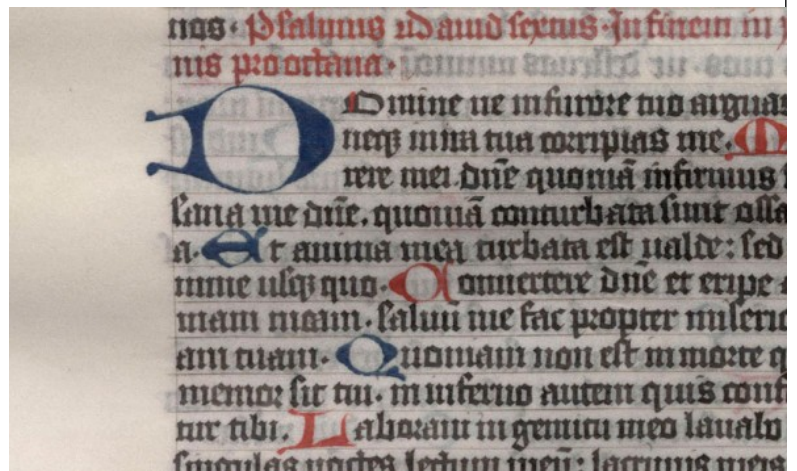 nos. Psalmus David sextus. In finem in
nis pro octava.
Domine ne in furore tuo arguas
neqꝫ in ira tua corripias me. M
rere mei dn̄e quoniā infirmus
sana me dn̄e. quoniā conturbata sunt ossa
a. Et anima mea turbata est ualde: sed
mine usqꝫ quo. Conuertere dn̄e et eripe a
mam meam. saluū me fac propter miseric
am tuam. Quoniam non est in morte q
memor sit tui. in inferno autem quis conf
tur tibi. Laboraui in gemitu meo lauabo
singulas noctes lectum meū: lacrimis meis